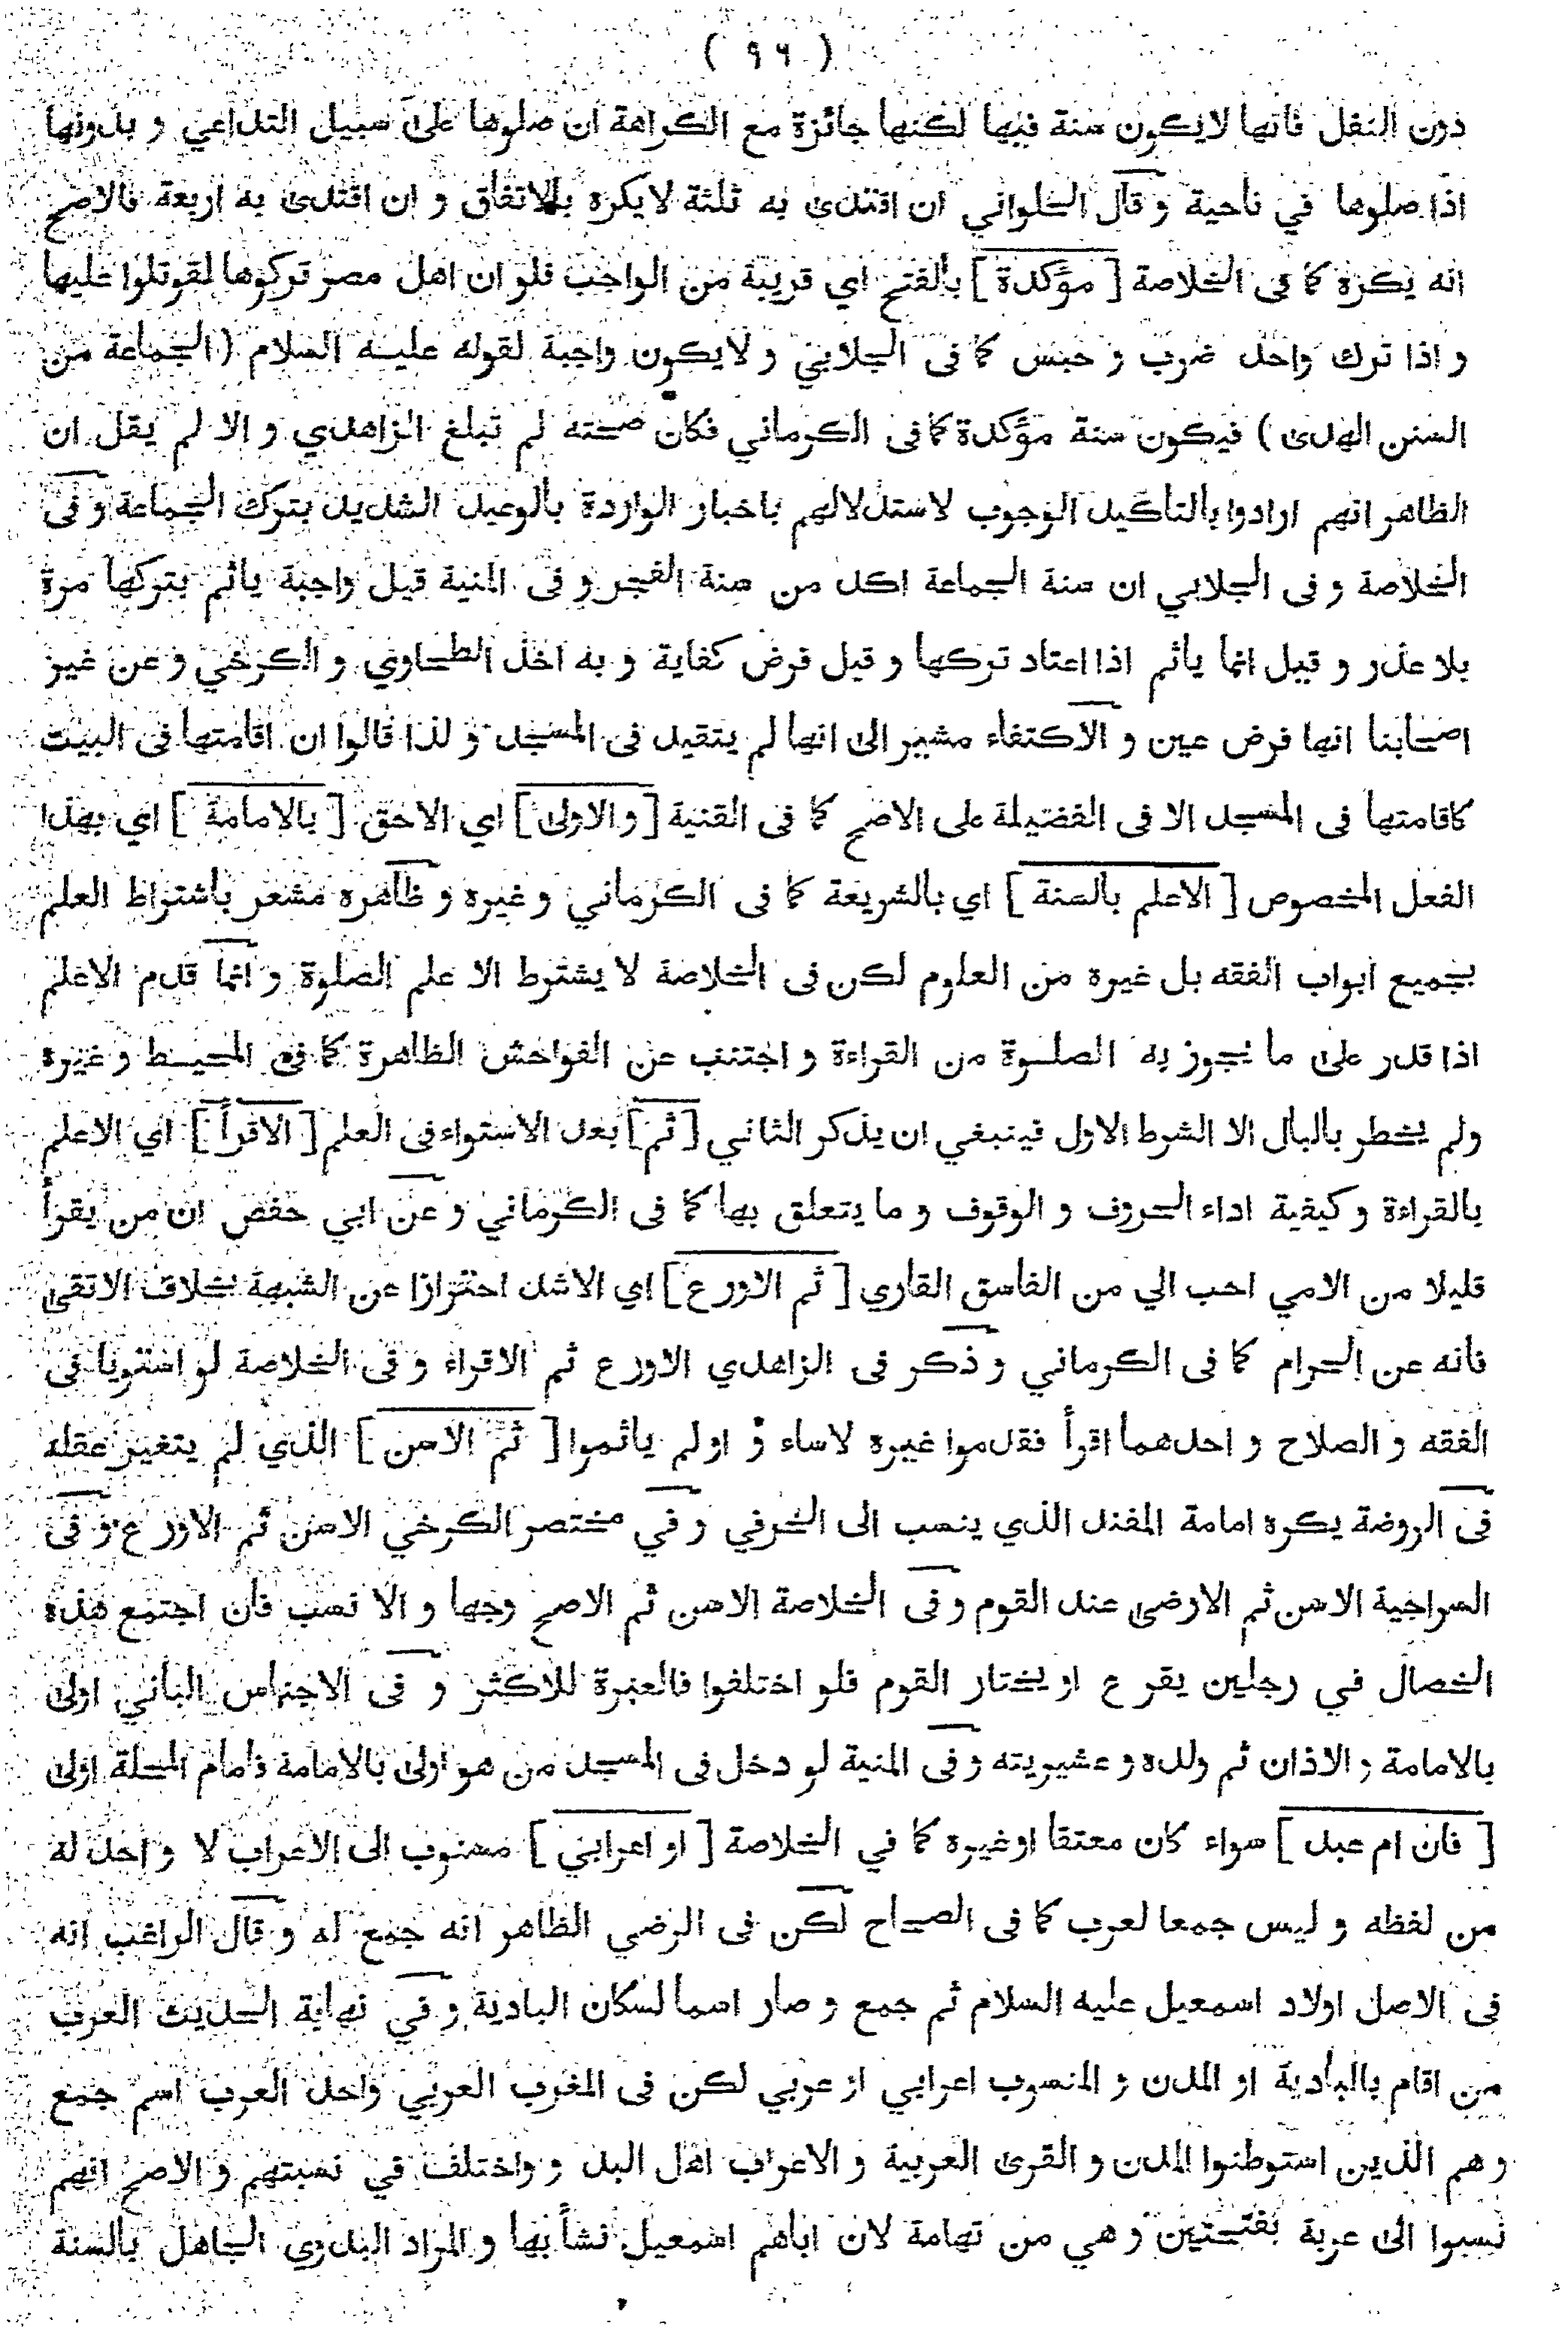 ( ٩٦ )
دون النفل فانها لايكون سنة فيها لكنها جائزة مع الكراهة ان صلوها على سبيل التداعي و بدونها
اذا صلوها في ناحية و قال الحلواني ان اقتدى به ثلثة لايكره بالاتفاق و ان اقتدى به اربعة فالاصح
انه يكره كما فى الخلاصة [ مؤكدة ] بالفتح اي قريبة من الواجب فلو ان اهل مصر تركوها لقوتلوا عليها
و اذا ترك واحد ضرب و حبس كما فى الجلابي و لايكون واجبة لقوله عليه السلام ( الجماعة من
السنن الهدى ) فيكون سنة مؤكدة كما فى الكرماني فكان صحته لم تبلغ الزاهدي و الا لم يقل ان
الظاهر انهم ارادوا بالتاكيد الوجوب لاستدلالهم باخبار الواردة بالوعيد الشديد بترك الجماعة و فى
الخلاصة و فى الجلابي ان سنة الجماعة اكد من سنة الفجر و فى المنية قيل واجبة ياثم بتركها مرة
بلا عذر و قيل انما ياثم اذا اعتاد تركها و قيل فرض كفاية و به اخذ الطحاوي و الكرخي و عن غير
اصحابنا انها فرض عين و الاكتفاء مشير الى انها لم يتقيد فى المسجد و لذا قالوا ان اقامتها فى البيت
كاقامتها فى المسجد الا فى الفضيلة على الاصح كما فى القنية [ و الاولى ] اي الاحق [ بالامامة ] اي بهذا
الفعل المخصوص [ الاعلم بالسنة ] اي بالشريعة كما فى الكرماني و غيره و ظاهره مشعر باشتراط العلم
بجميع ابواب الفقه بل غيره من العلوم لكن فى الخلاصة لا يشترط الا علم الصلوة و انما قدم الاعلم
اذا قدر على ما يجوز به الصلوة من القراءة و اجتنب عن الفواحش الظاهرة كما في المحيط و غيره
ولم يخطر بالبال الا الشرط الاول فينبغي ان يذكر الثاني [ ثم ] بعد الاستواء فى العلم [ الاقرأ ] اي الاعلم
بالقراءة و كيفية اداء الحروف و الوقوف و ما يتعلق بها كما فى الكرماني و عن ابي حفص ان من يقرأ
قليلا من الامي احب الي من الفاسق القاري [ ثم الاورع ] اي الاشد احترازا عن الشبهة بخلاف الاتقى
فانه عن الحرام كما فى الكرماني و ذكر فى الزاهدي الاورع ثم الاقراء و فى الخلاصة لو استويا فى
الفقه و الصلاح و احدهما اقرأ فقدموا غيره لاساء و او لم ياثموا [ ثم الاسن ] الذي لم يتغير عقله
فى الروضة يكره امامة المفند الذي ينسب الى الخرفي و في مختصر الكرخي الاسن ثم الاورع و فى
السراجية الاسن ثم الارضى عند القوم و فى الخلاصة الاسن ثم الاصح وجها و الا نسب فان اجتمع هذه
الخصال في رجلين يقرع او يختار القوم فلو اختلفوا فالعبرة للاكثر و فى الاجناس الباني اولى
بالامامة و الاذان ثم ولده و عشيريته و فى المنية لو دخل فى المسجد من هو اولى بالامامة فامام المحلة اولى
[ فان ام عبد ] سواء كان معتقا او غيره كما في الخلاصة [ او اعرابي ] منسوب الى الاعراب لا واحد له
من لفظه و ليس جمعا لعرب كما فى الصحاح لكن فى الرضي الظاهر انه جمع له و قال الراغب انه
فى الاصل اولاد اسمعيل عليه السلام ثم جمع و صار اسما لسكان البادية و في نهاية الحديث العرب
من اقام بالبادية او المدن و المنسوب اعرابي او عربي لكن فى المغرب العربي واحد العرب اسم جمع
و هم الذين استوطنوا المدن و القرى العربية و الاعراب اهل البدو و اختلف في نسبتهم و الاصح انهم
نسبوا الى عربة بفتحتين و هي من تهامة لان اباهم اسمعيل نشأ بها و المراد البدوي الجاهل بالسنة